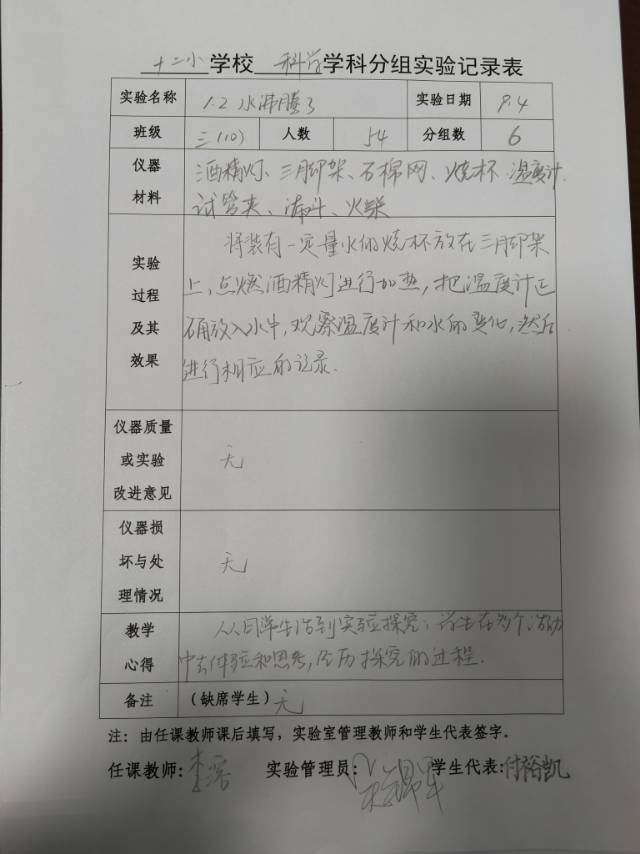 十二小学校 科学学科分组实验记录表
实验名称 1.2 水沸腾了 实验日期 9.4
班级 三(10) 人数 54 分组数 6
仪器材料
酒精灯、三脚架、石棉网、烧杯、温度计
试管夹、漏斗、火柴
实验过程及其效果
将装有一定量水的烧杯放在三脚架
上,点燃酒精灯进行加热,把温度计正
确放入水中,观察温度计和水的变化,然后
进行相应的记录.
仪器质量或实验改进意见
无
仪器损坏与处理情况
无
教学心得
从日常生活到实验探究,学生在每个活动
中去体验和思考,经历探究的过程.
备注 (缺席学生) 无
注:由任课教师课后填写,实验室管理教师和学生代表签字。
任课教师: 李 实验管理员: 学生代表:付裕凯